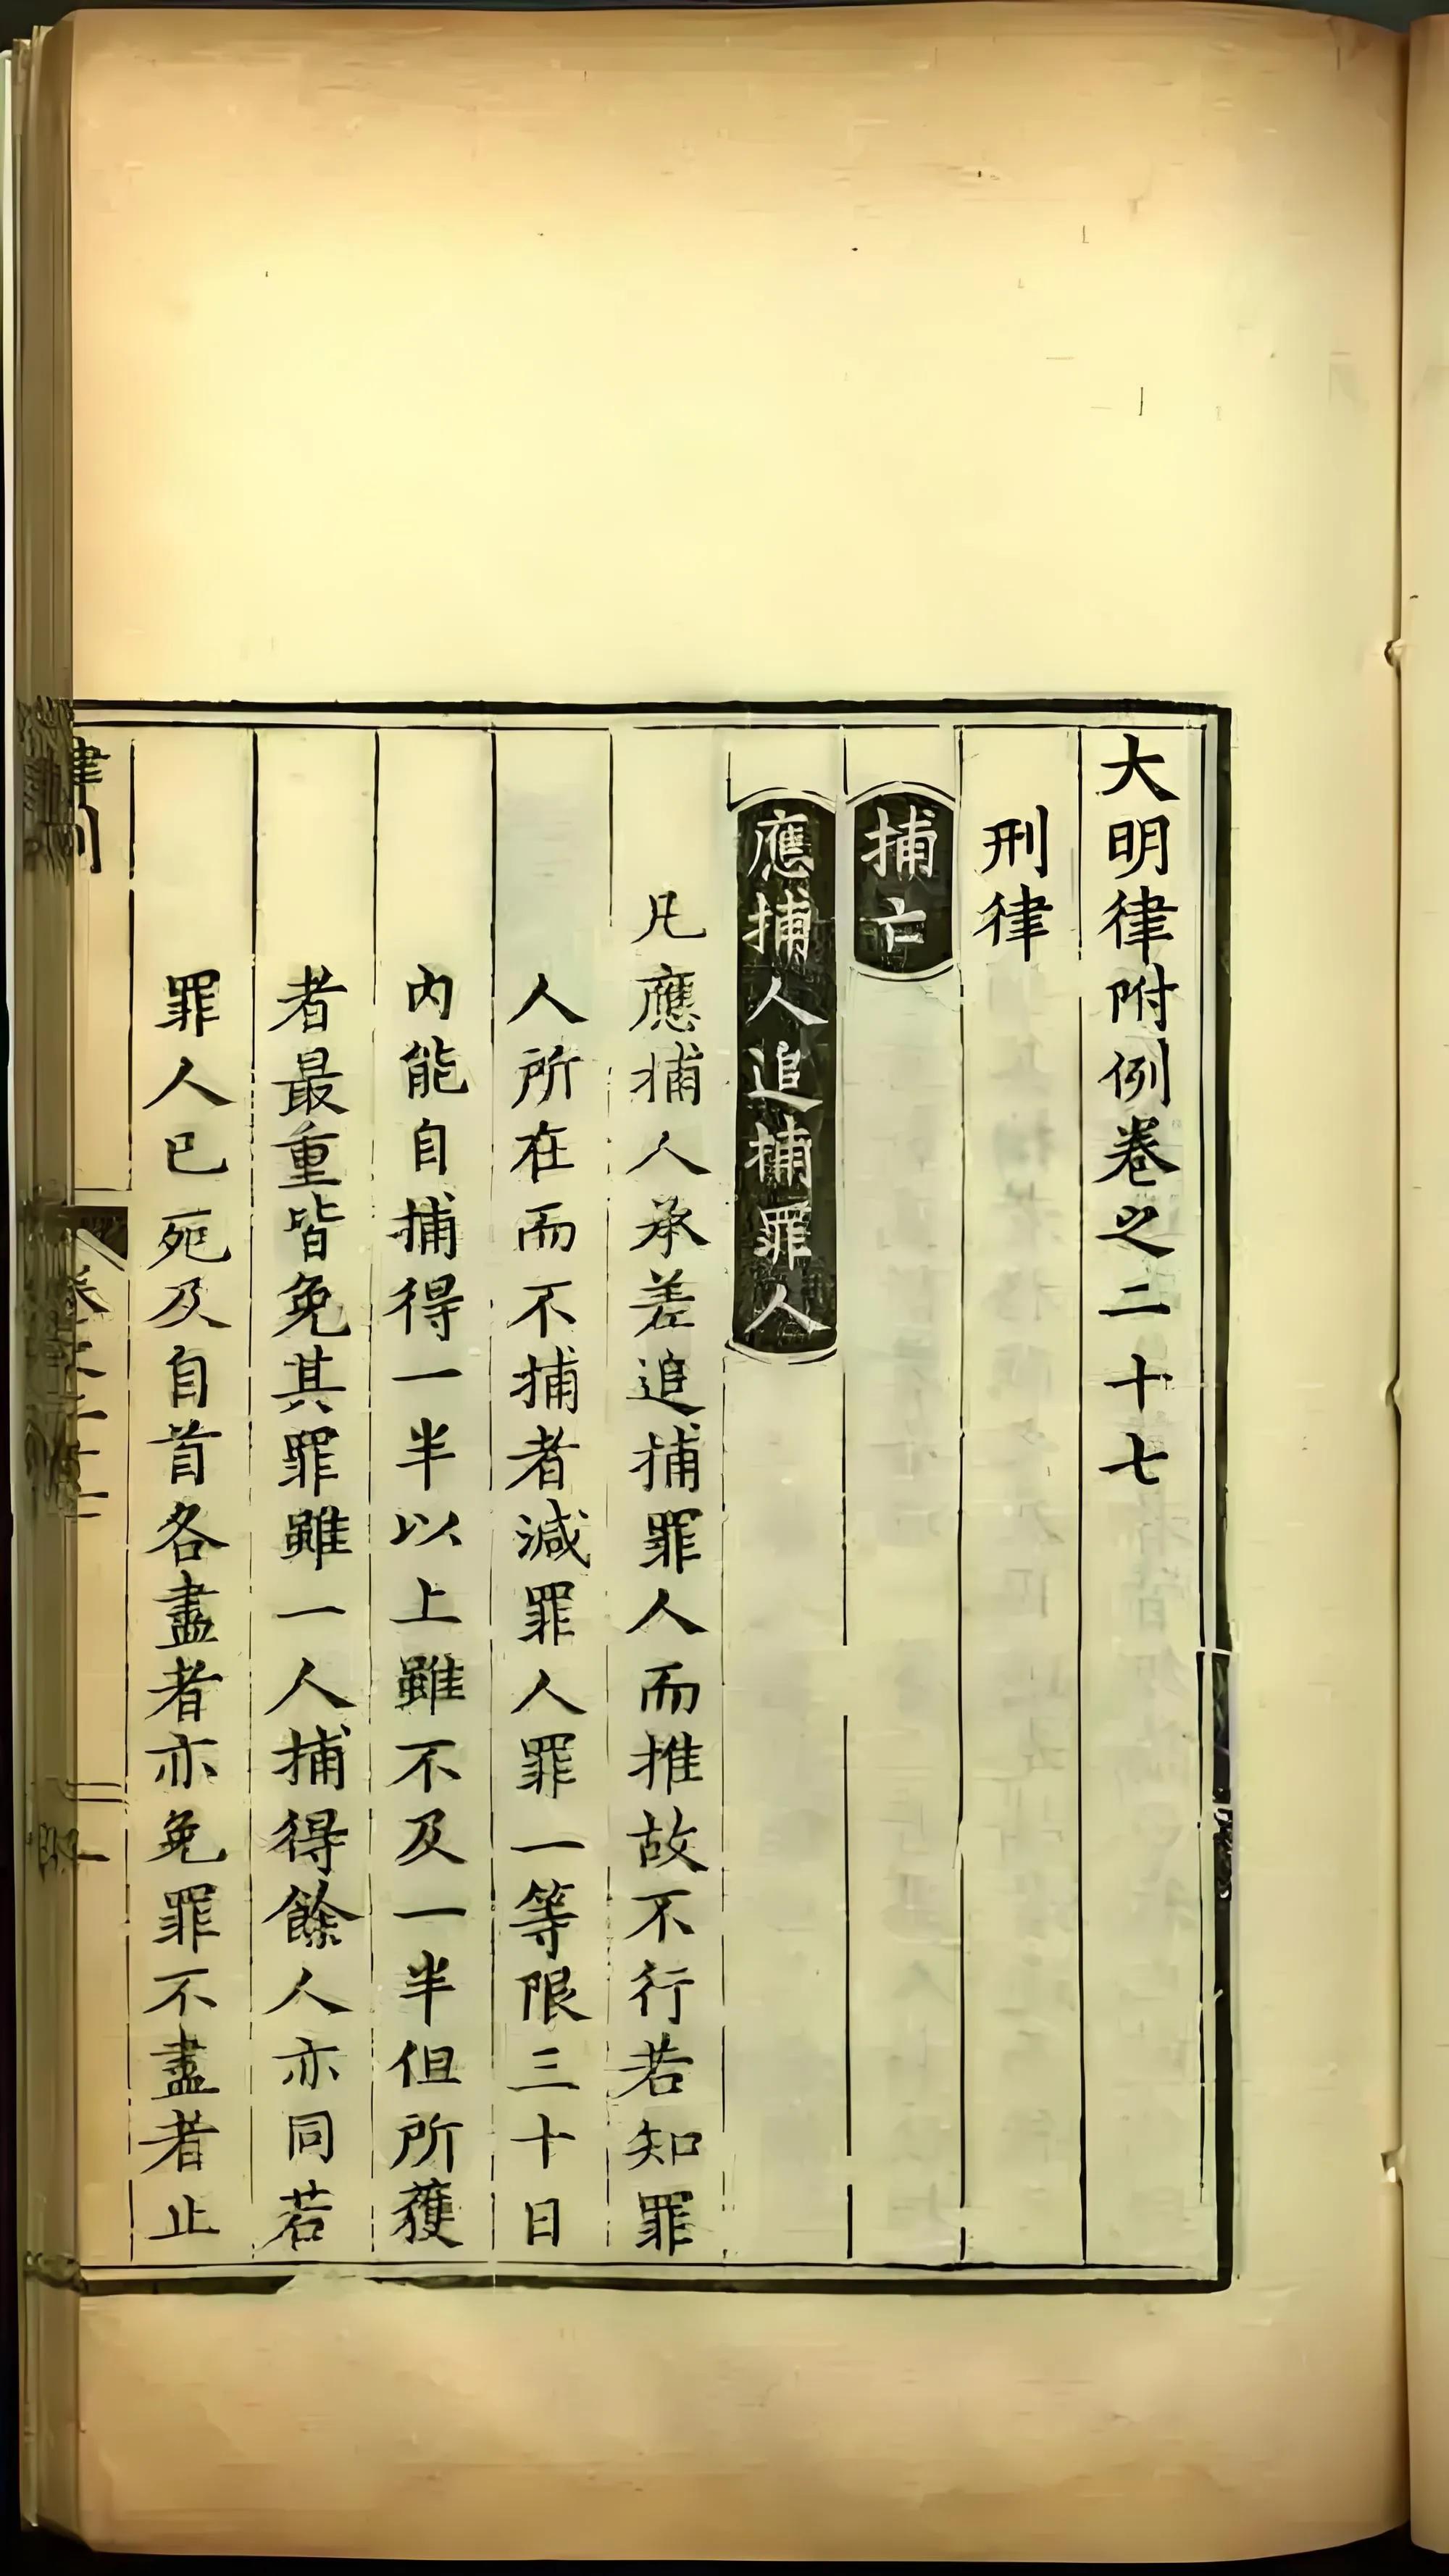 大明律附例卷之二十七
刑律
捕亡
應捕人追捕罪人
凡應捕人承差追捕罪人而推故不行若知罪
人所在而不捕者減罪人罪一等限三十日
內能自捕得一半以上雖不及一半但所獲
者最重皆免其罪雖一人捕得餘人亦同若
罪人已死及自首各盡者亦免罪不盡者止